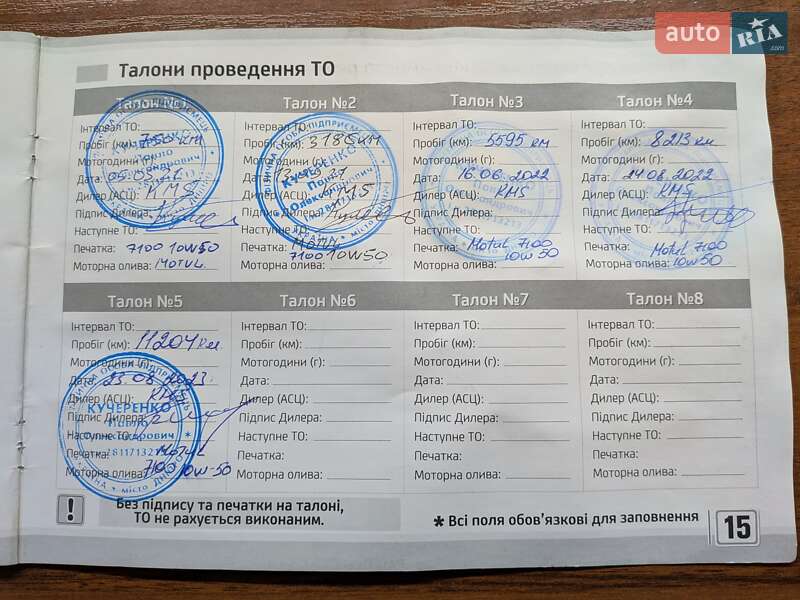 auto RIA.com
Талони проведення ТО
Талон №1
Інтервал ТО:
Пробіг (км): км
Мотогодини (г):
Дата:
Дилер (АСЦ): KMS
Підпис Дилера:
Наступне ТО:
Печатка: 7100 10W50
Моторна олива: MOTUL
Талон №2
Інтервал ТО:
Пробіг (км): 3186 км
Мотогодини (г):
Дата:
Дилер (АСЦ): KMS
Підпис Дилера:
Наступне ТО:
Печатка: MOTUL
Моторна олива: 7100 10W50
КУЧЕРЕНКО
Павло
Олександрович
Талон №3
Інтервал ТО:
Пробіг (км): 5595 км
Мотогодини (г):
Дата: 16.06.2022
Дилер (АСЦ): KMS
Підпис Дилера:
Наступне ТО:
Печатка: Motul 7100
Моторна олива: 10W50
Талон №4
Інтервал ТО:
Пробіг (км): 8213 км
Мотогодини (г):
Дата: 24.08.2022
Дилер (АСЦ): KMS
Підпис Дилера:
Наступне ТО:
Печатка: Motul 7100
Моторна олива: 10W50
Талон №5
Інтервал ТО:
Пробіг (км): 11204 км
Мотогодини (г):
Дата: 23.08.2023
Дилер (АСЦ):
Підпис Дилера:
Наступне ТО:
Печатка: MOTUL
Моторна олива: 7100 10W-50
КУЧЕРЕНКО
Павло
Олександрович
Талон №6
Інтервал ТО:
Пробіг (км):
Мотогодини (г):
Дата:
Дилер (АСЦ):
Підпис Дилера:
Наступне ТО:
Печатка:
Моторна олива:
Талон №7
Інтервал ТО:
Пробіг (км):
Мотогодини (г):
Дата:
Дилер (АСЦ):
Підпис Дилера:
Наступне ТО:
Печатка:
Моторна олива:
Талон №8
Інтервал ТО:
Пробіг (км):
Мотогодини (г):
Дата:
Дилер (АСЦ):
Підпис Дилера:
Наступне ТО:
Печатка:
Моторна олива:
! Без підпису та печатки на талоні,
ТО не рахується виконаним.
* Всі поля обов’язкові для заповнення
15